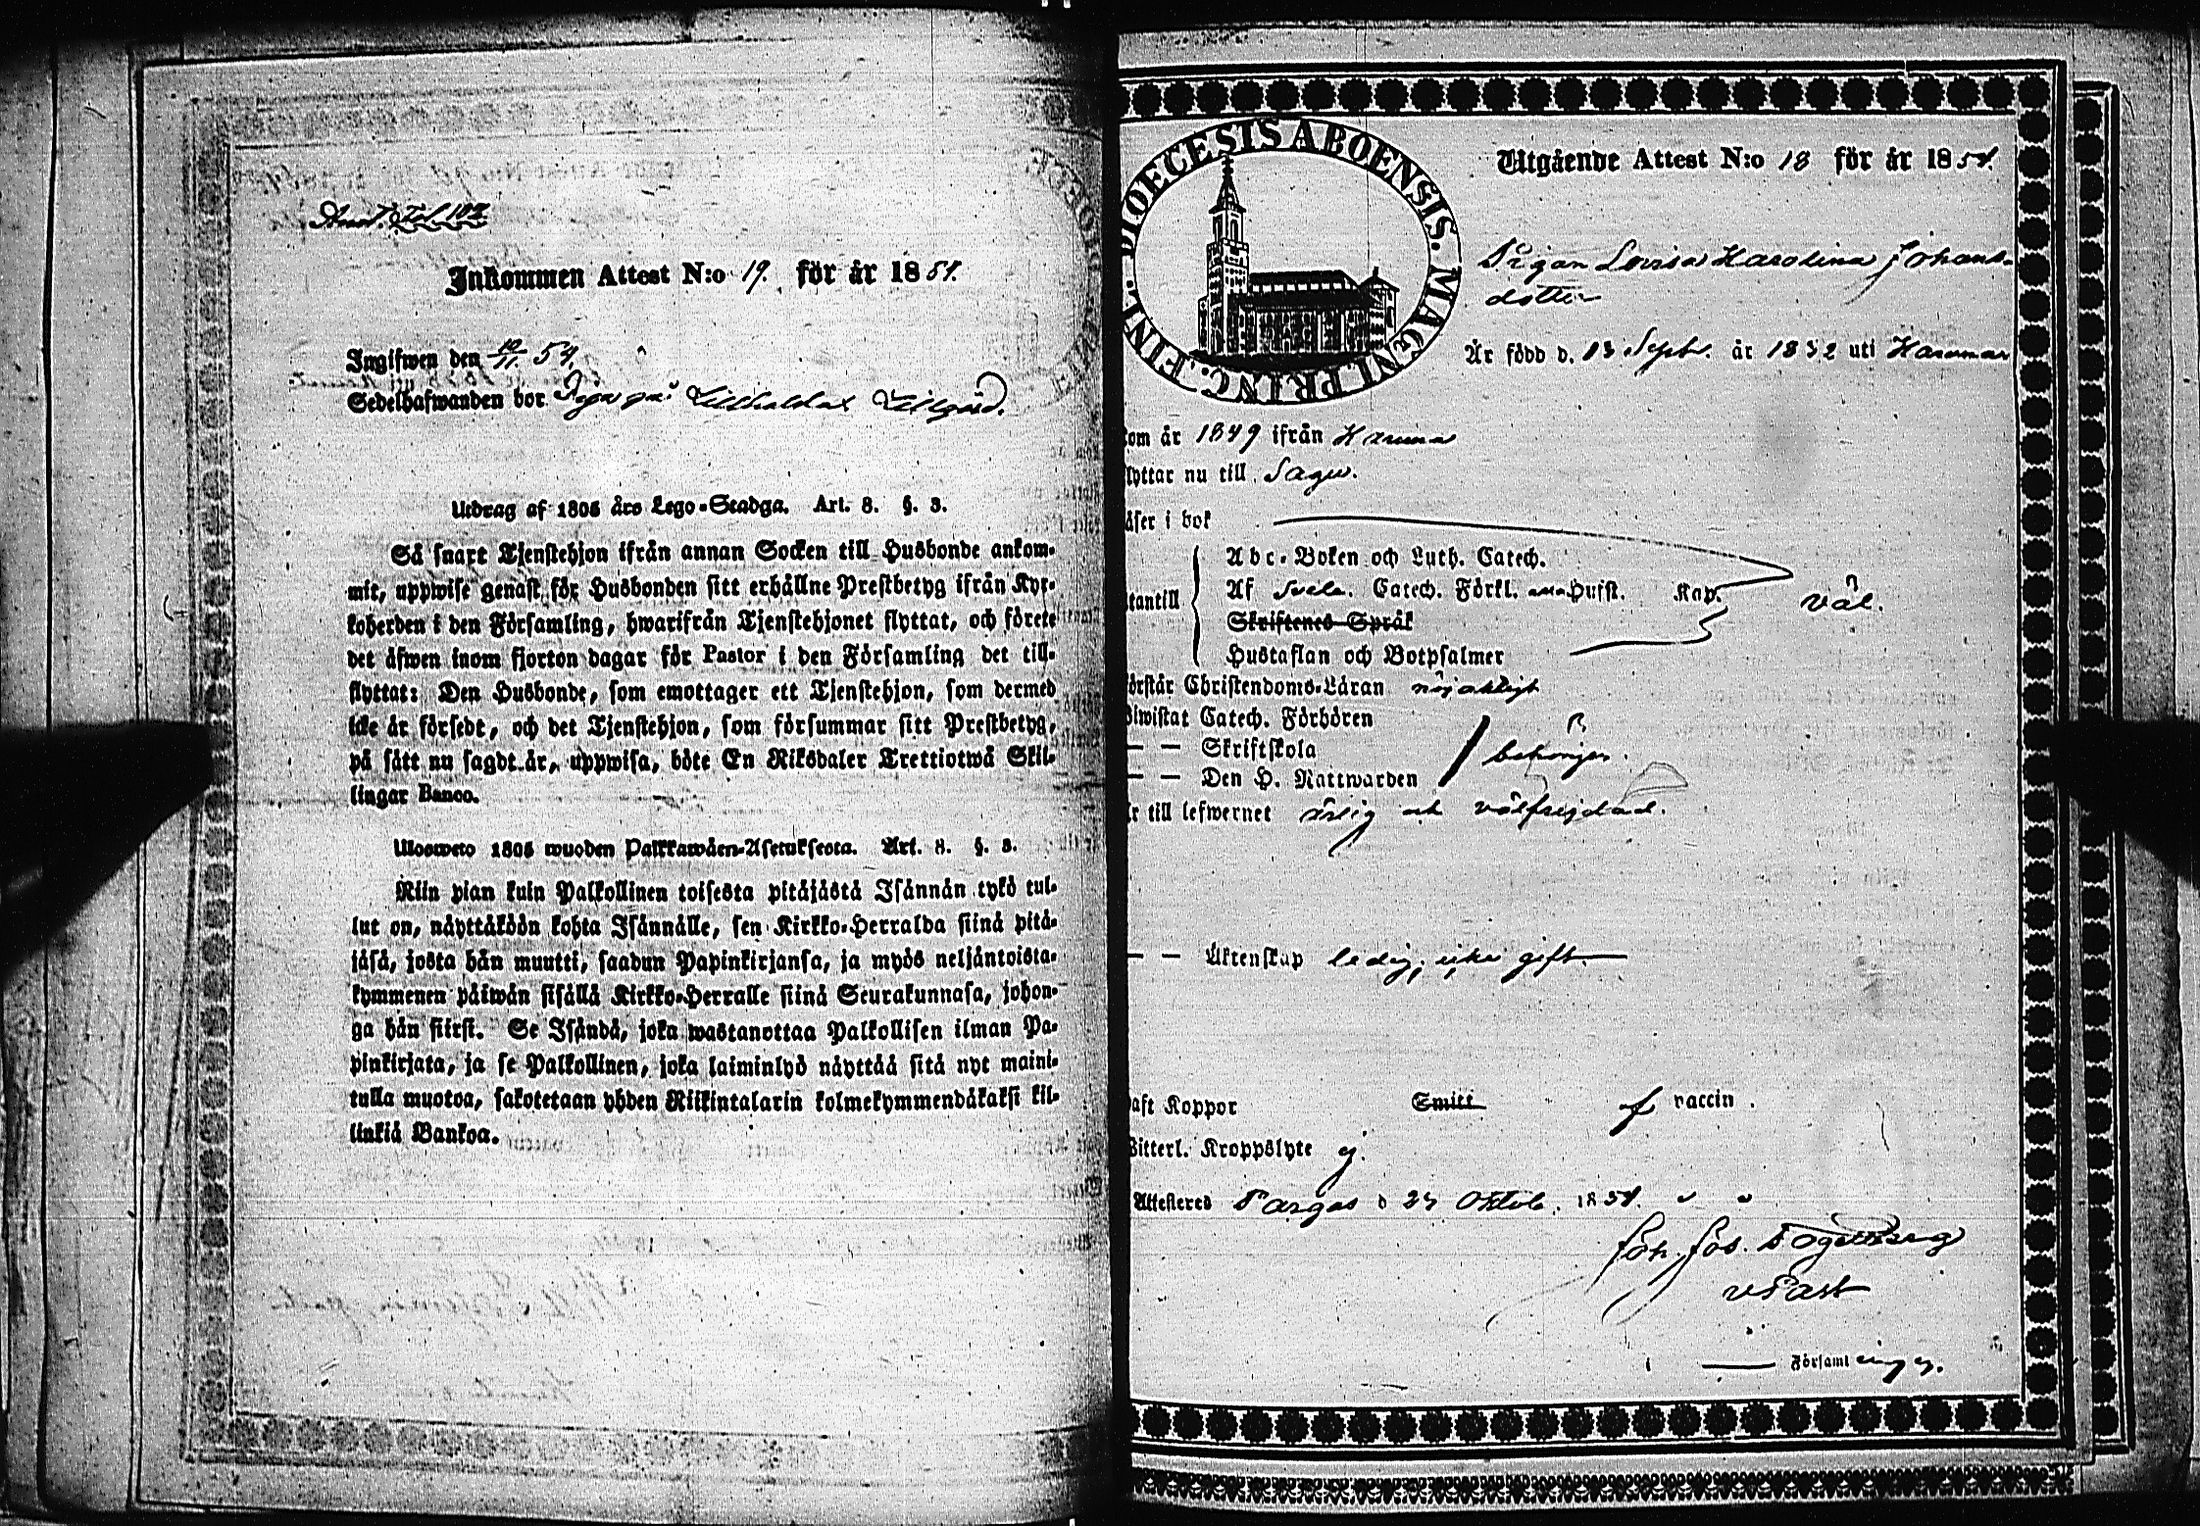 Anot. Fol. 107
Inkommen Attest N:o 19. för år 1854.
Ingifwen den 10/11. 54.
Sedelhafwanden bor Piga på Lillgård.
Utdrag af 1805 års Lego-Stadga. Art. 8. §. 3.
Så snart Tjenstehjon ifrån annan Socken till Husbonde ankom-
mit, uppwise genast för Husbonden sitt erhållne Prestbetyg ifrån Kyr-
koherden i den Församling, hwarifrån Tjenstehjonet flyttat, och förete
det äfwen inom fjorton dagar för Pastor i den Församling det till-
flyttat: Den Husbonde, som emottager ett Tjenstehjon, som dermed
icke är försedt, och det Tjenstehjon, som försummar sitt Prestbetyg,
på sätt nu sagdt är, uppwisa, böte En Riksdaler Trettiotwå Skil-
lingar Banco.
Ulosweto 1805 wuoden Palkkawäen-Asetuksesta. Art. 8. §. 3.
Niin pian kuin Palkollinen toisesta pitäjästä Isännän tykö tul-
lut on, näyttäköön kohta Isännälle, sen Kirkko-Herralda siinä pitä-
jäsä, josta hän muutti, saadun Papinkirjansa, ja myös neljäntoista-
kymmenen päiwän sisällä Kirkko-Herralle siinä Seurakunnasa, johon-
ga hän siirst. Se Isändä, joka wastanottaa Palkollisen ilman Pa-
pinkirjata, ja se Palkollinen, joka laiminlyö näyttää sitä nyt maini-
tulla muotoa, sakotetaan yhden Riikintalarin kolmekymmendäkaksi kil-
linkiä Bankoa.
DIOECESIS ABOENSIS. MAGNI PRINC. FINL.
Utgående Attest N:o 18 för år 1854.
Pigan Lovisa Karolina Johans-
dotter
Är född d. 13 Septr. år 1832 uti Karuna
om år 1849 ifrån Karuna
lyttar nu till Sagu.
äser i bok
tantill
Abc-Boken och Luth. Catech.
Af Svebe. Catech. Förkl. Hufst. Kap.
Skriftenes Språk
Hustaflan och Botpsalmer
väl.
örstår Christendoms-Läran nöjaktigt
iwistat Catech. Förhören
— — Skriftskola
— — Den H. Nattwarden
behörigen.
r till lefwernet ärlig och välfrejdad.
— — Äktenskap ledig, icke gift.
aft Koppor Smitt vaccin.
itterl. Kroppslyte ej.
Attesteres Pargas d 24 Oktob. 1854.
Joh. Jos.
vPast
Församl